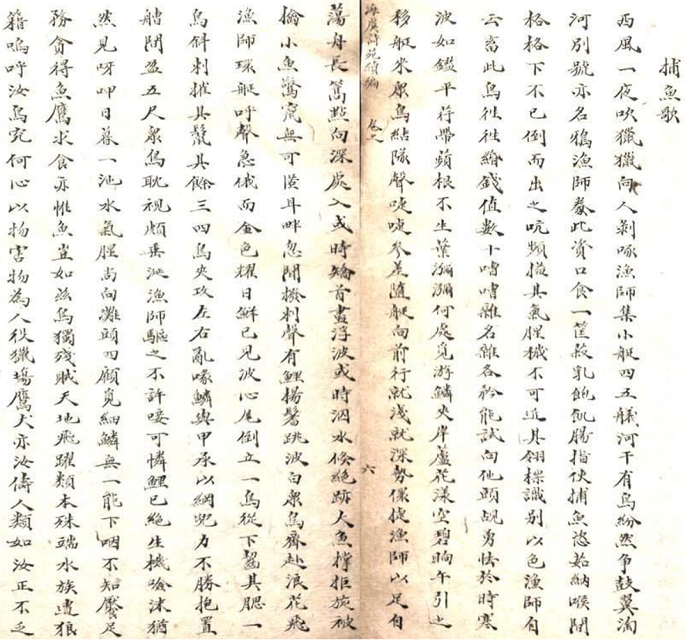 捕魚歌
西風一夜吹獵獵向人剝啄漁師集小艇四五艤河干有鳥紛然爭鼓翼淘
河別號亦名鴉漁師養此資口食一筐穀乳飽飢腸指使捕魚恣茹納喉間
格格下不已倒而出之吭頻搤其氣腥穢不可近其翎標識別以色漁師自
云畜此鳥往往緡錢值數十嘈嘈雜名雜各矜能試向池頭覘勇怯於時寒
波如鑑平荇帶蘋根不生葉瀰瀰何處覓游鱗夾岸蘆花漾空碧晌午引之
移艇來眾鳥結隊聲唼唼參差隨艇向前行就淺就深勢儇捷漁師以足自
海虞詩苑續編 卷上
六
蕩舟長篙點向深處入或時矯首盡浮波或時泅水倏絕跡大魚撐拒旋被
擒小魚驚竄無可匿耳畔忽聞撥剌聲有鯉揚鬐跳波白眾鳥齊赴浪花飛
漁師環艇呼聲急俄而金色耀日鮮已見波心尾倒立一鳥從下齧其腮一
鳥斜刺摧其鬣其餘三四鳥夾攻左右亂喙鱗與甲承以網兜力不勝抱置
艙間盈五尺眾鳥耽視頗垂涎漁師驅之不許唼可憐鯉已絕生機噞沫猶
然見呀呷日暮一池水氣腥尚向灘頭四顧覓細鱗無一能下咽不知饜足
務貪得魚鷹求食亦惟魚豈如茲鳥獨殘賊天地飛躍類本殊端水族遭狼
籍嗚呼汝鳥究何心以物害物為人役獵場鷹犬亦汝儔人類如汝正不乏